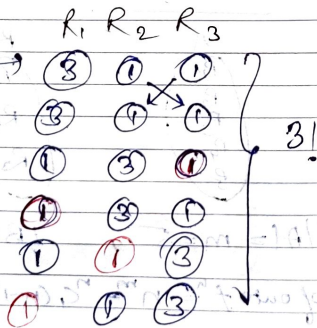 R₁ R₂ R₃
3 1 1
3 1 1
1 3 1 3!
1 3 1
1 1 3
1 1 3